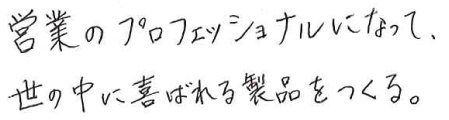 営業のプロフェッショナルになって、
世の中に喜ばれる製品をつくる。